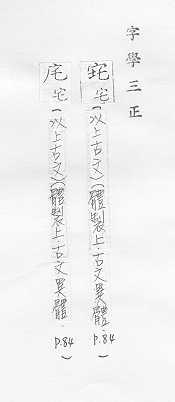 字學三正
宅(以上古文)(體製上·古文異體·P.84)
宅(以上古文)(體製上·古文異體·P.84)